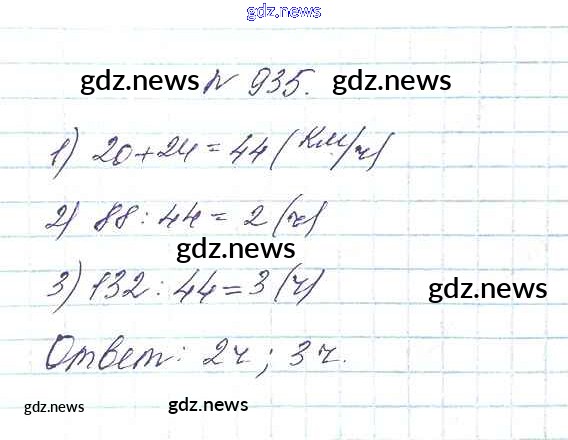 gdz.news
gdz.news № 935. gdz.news
1) 20+24=44 (км/ч)
2) 88:44=2 (ч)
gdz.news
3) 132:44=3 (ч)
gdz.news
Ответ: 2ч; 3ч.
gdz.news gdz.news